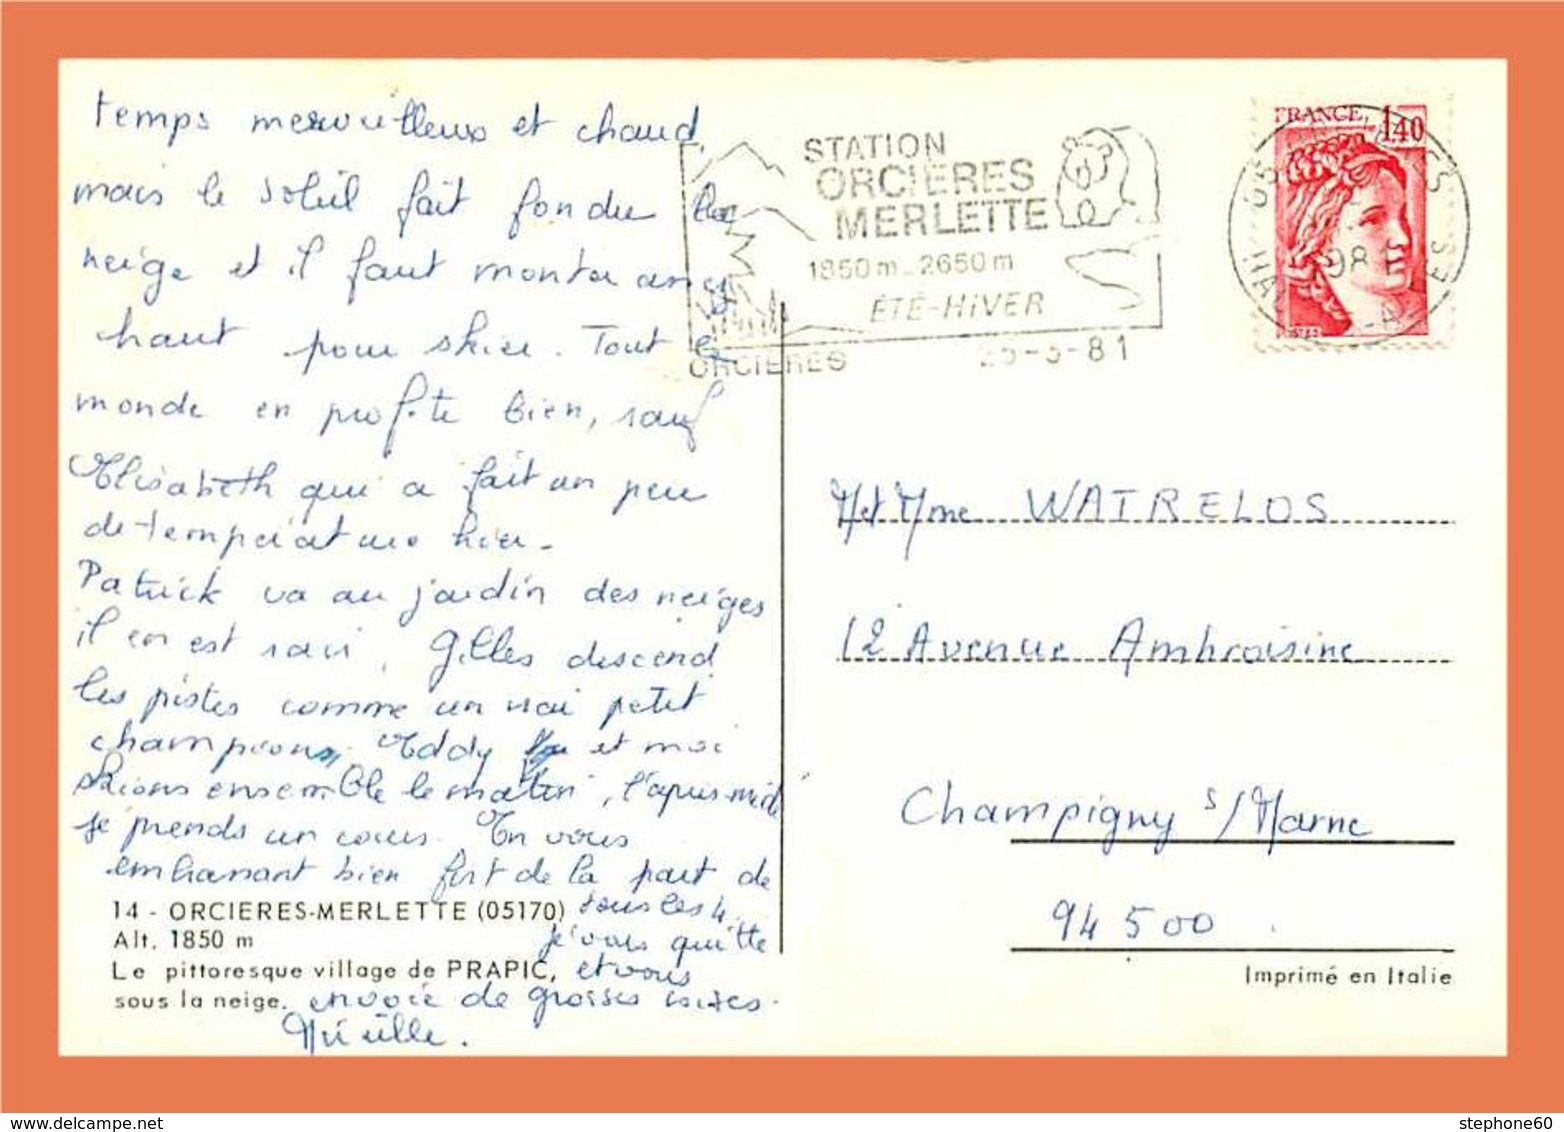 temps merveilleux et chaud
mais le soleil fait fondre la
neige et il faut monter assez
haut pour skier. Tout le
monde en profite bien, sauf
Elisabeth qui a fait un peu
de température hier.
Patrick va au jardin des neiges
il en est ravi, Gilles descend
les pistes comme un vrai petit
champion, Eddy et moi
skions ensemble le matin, l'après-midi
je prends un cours. En vous
embrassant bien fort de la part de
tous les 4.
je vous quitte
et vous
envoie de grosses bises.
Mireille.
14 - ORCIERES-MERLETTE (05170)
Alt. 1850 m
Le pittoresque village de PRAPIC,
sous la neige.
STATION
ORCIERES
MERLETTE
1850m_2650m
ÉTÉ-HiVER
ORCIERES 25-3-81
FRANCE 1,40
M et Mme WATRELOS
12 Avenue Ambroisine
Champigny s/Marne
94 500
Imprimé en Italie
stephone60